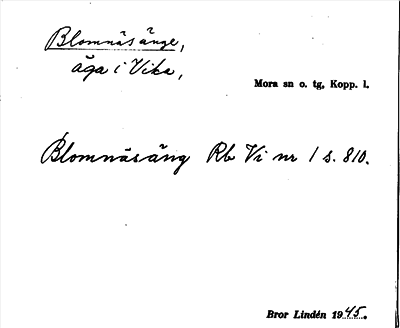 Blomnäsänge,
äga i Vika,
Mora sn o. tg, Kopp. l.
Blomnäsäng Rb Vi nr 1 s. 810.
Bror Lindén 1945.